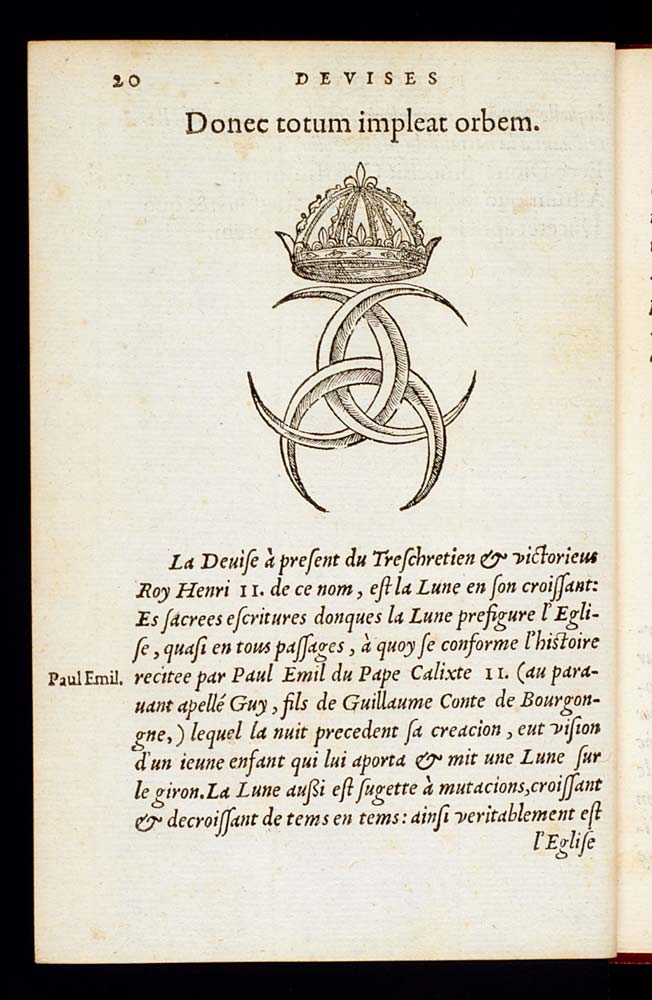 20 DEVISES
Donec totum impleat orbem.
La Deuiſe à preſent du Treſchretien & victorieus
Roy Henri II. de ce nom, eſt la Lune en ſon croiſſant:
Es ſacrees eſcritures donques la Lune prefigure l'Egli-
ſe, quaſi en tous paſſages, à quoy ſe conforme l'hiſtoire
Paul Emil. recitee par Paul Emil du Pape Calixte II. (au para-
uant apellé Guy, fils de Guillaume Conte de Bourgon-
gne,) lequel la nuit precedent ſa creacion, eut viſion
d'un ieune enfant qui lui aporta & mit une Lune ſur
le giron. La Lune außi eſt ſugette à mutacions, croiſſant
& decroiſſant de tems en tems: ainſi veritablement eſt
l'Egliſe